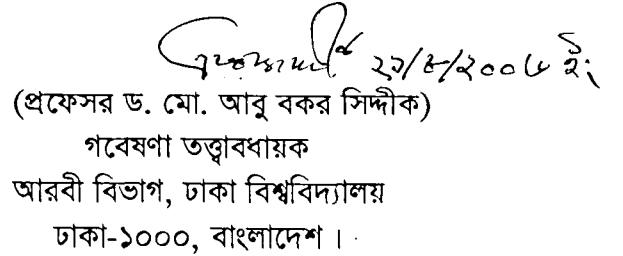 ২৯/৮/২০০৬ ইং
(প্রফেসর ড. মো. আবু বকর সিদ্দীক)
গবেষণা তত্ত্বাবধায়ক
আরবী বিভাগ, ঢাকা বিশ্ববিদ্যালয়
ঢাকা-১০০০, বাংলাদেশ।